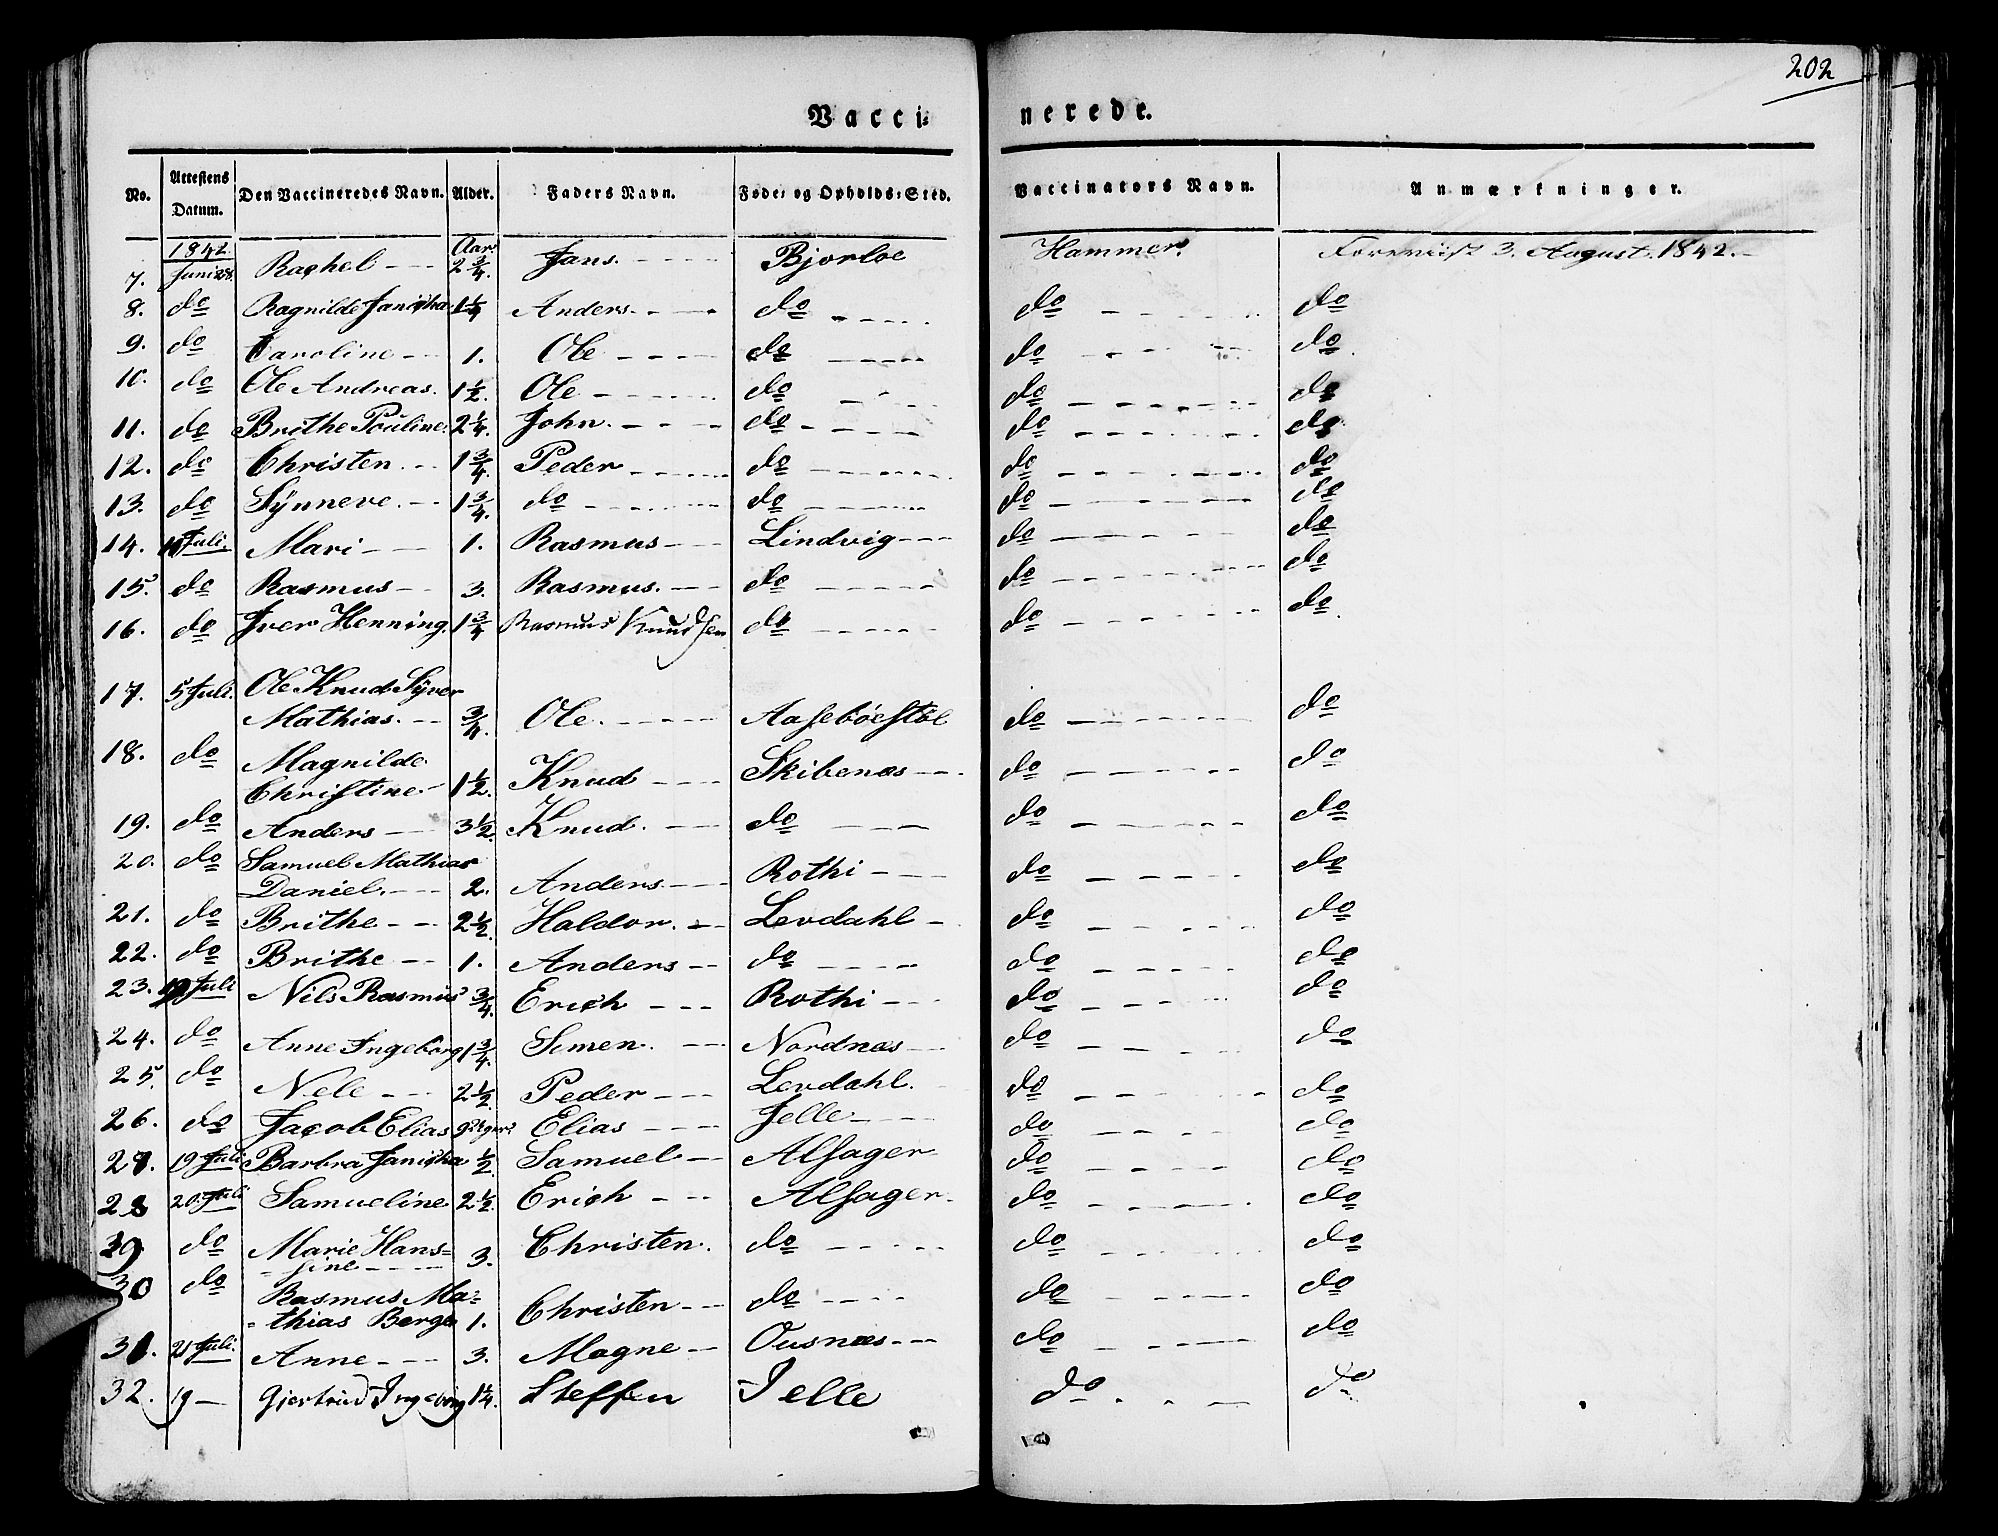 202
Vacci-nerede.
No. Attestens Datum. Den Vaccineredes Navn. Alder. Faders Navn. Føde- og Opholds-Sted. Vaccinators Navn. Anmærkninger.
1842 Aar
7. Juni 28. Rachel 2 3/4. Jans. Bjorloe Hammer. Foreviist 3. August. 1842.
8. do Ragnilde Janicha 1 1/4 Anders. do do do
9. do Caroline 1. Ole do do do
10. do Ole Andreas. 1 1/2. Ole do do do
11. do Brithe Pouline. 2 1/4. John. do do do
12. do Christen. 1 3/4. Peder do do do
13. do Synneve. 1 3/4. do do do do
14. Juli. Mari 1. Rasmus Lindvig do do
15. do Rasmus 3. Rasmus. do do do
16. do Iver Henning. 1 3/4 Rasmus Knudsen do do do
17. 5 Juli. Ole Knud Syver
Mathias. 3/4. Ole. Aasebøestøl do do
18. do Magnilde
Christine 1 1/2. Knud Skibenæs do do
19. do Anders 3 1/2. Knud. do do do
20. do Samuel Mathias
Daniel. 2. Anders Rothi do do
21. do Brithe 2 1/2. Haldor. Levdahl do do
22. do Brithe 1. Anders do do do
23. 19 Juli Nils Rasmus 3/4. Erich Rothi do do
24. do Anne Ingeborg 1 3/4. Simen. Nordnæs do do
25. do Nele 2 1/2. Peder Levdahl. do do
26. do Jacob Elias Elias Jelle do do
27. 19 Juli Barbra Janicha 1/2. Samuel Alsager do do
28 20 Juli Samueline 2 1/2. Erich Alsager. do do
29 do Marie Hans=
=sine 3. Christen. do do do
30 do Rasmus Ma=
=thias Berge 1. Christen do do do
31. 21 Juli. Anne 3. Magne Ousnæs do do
32. 19 — Gjertrud Ingeborg 1 1/4. Steffen Jelle do do